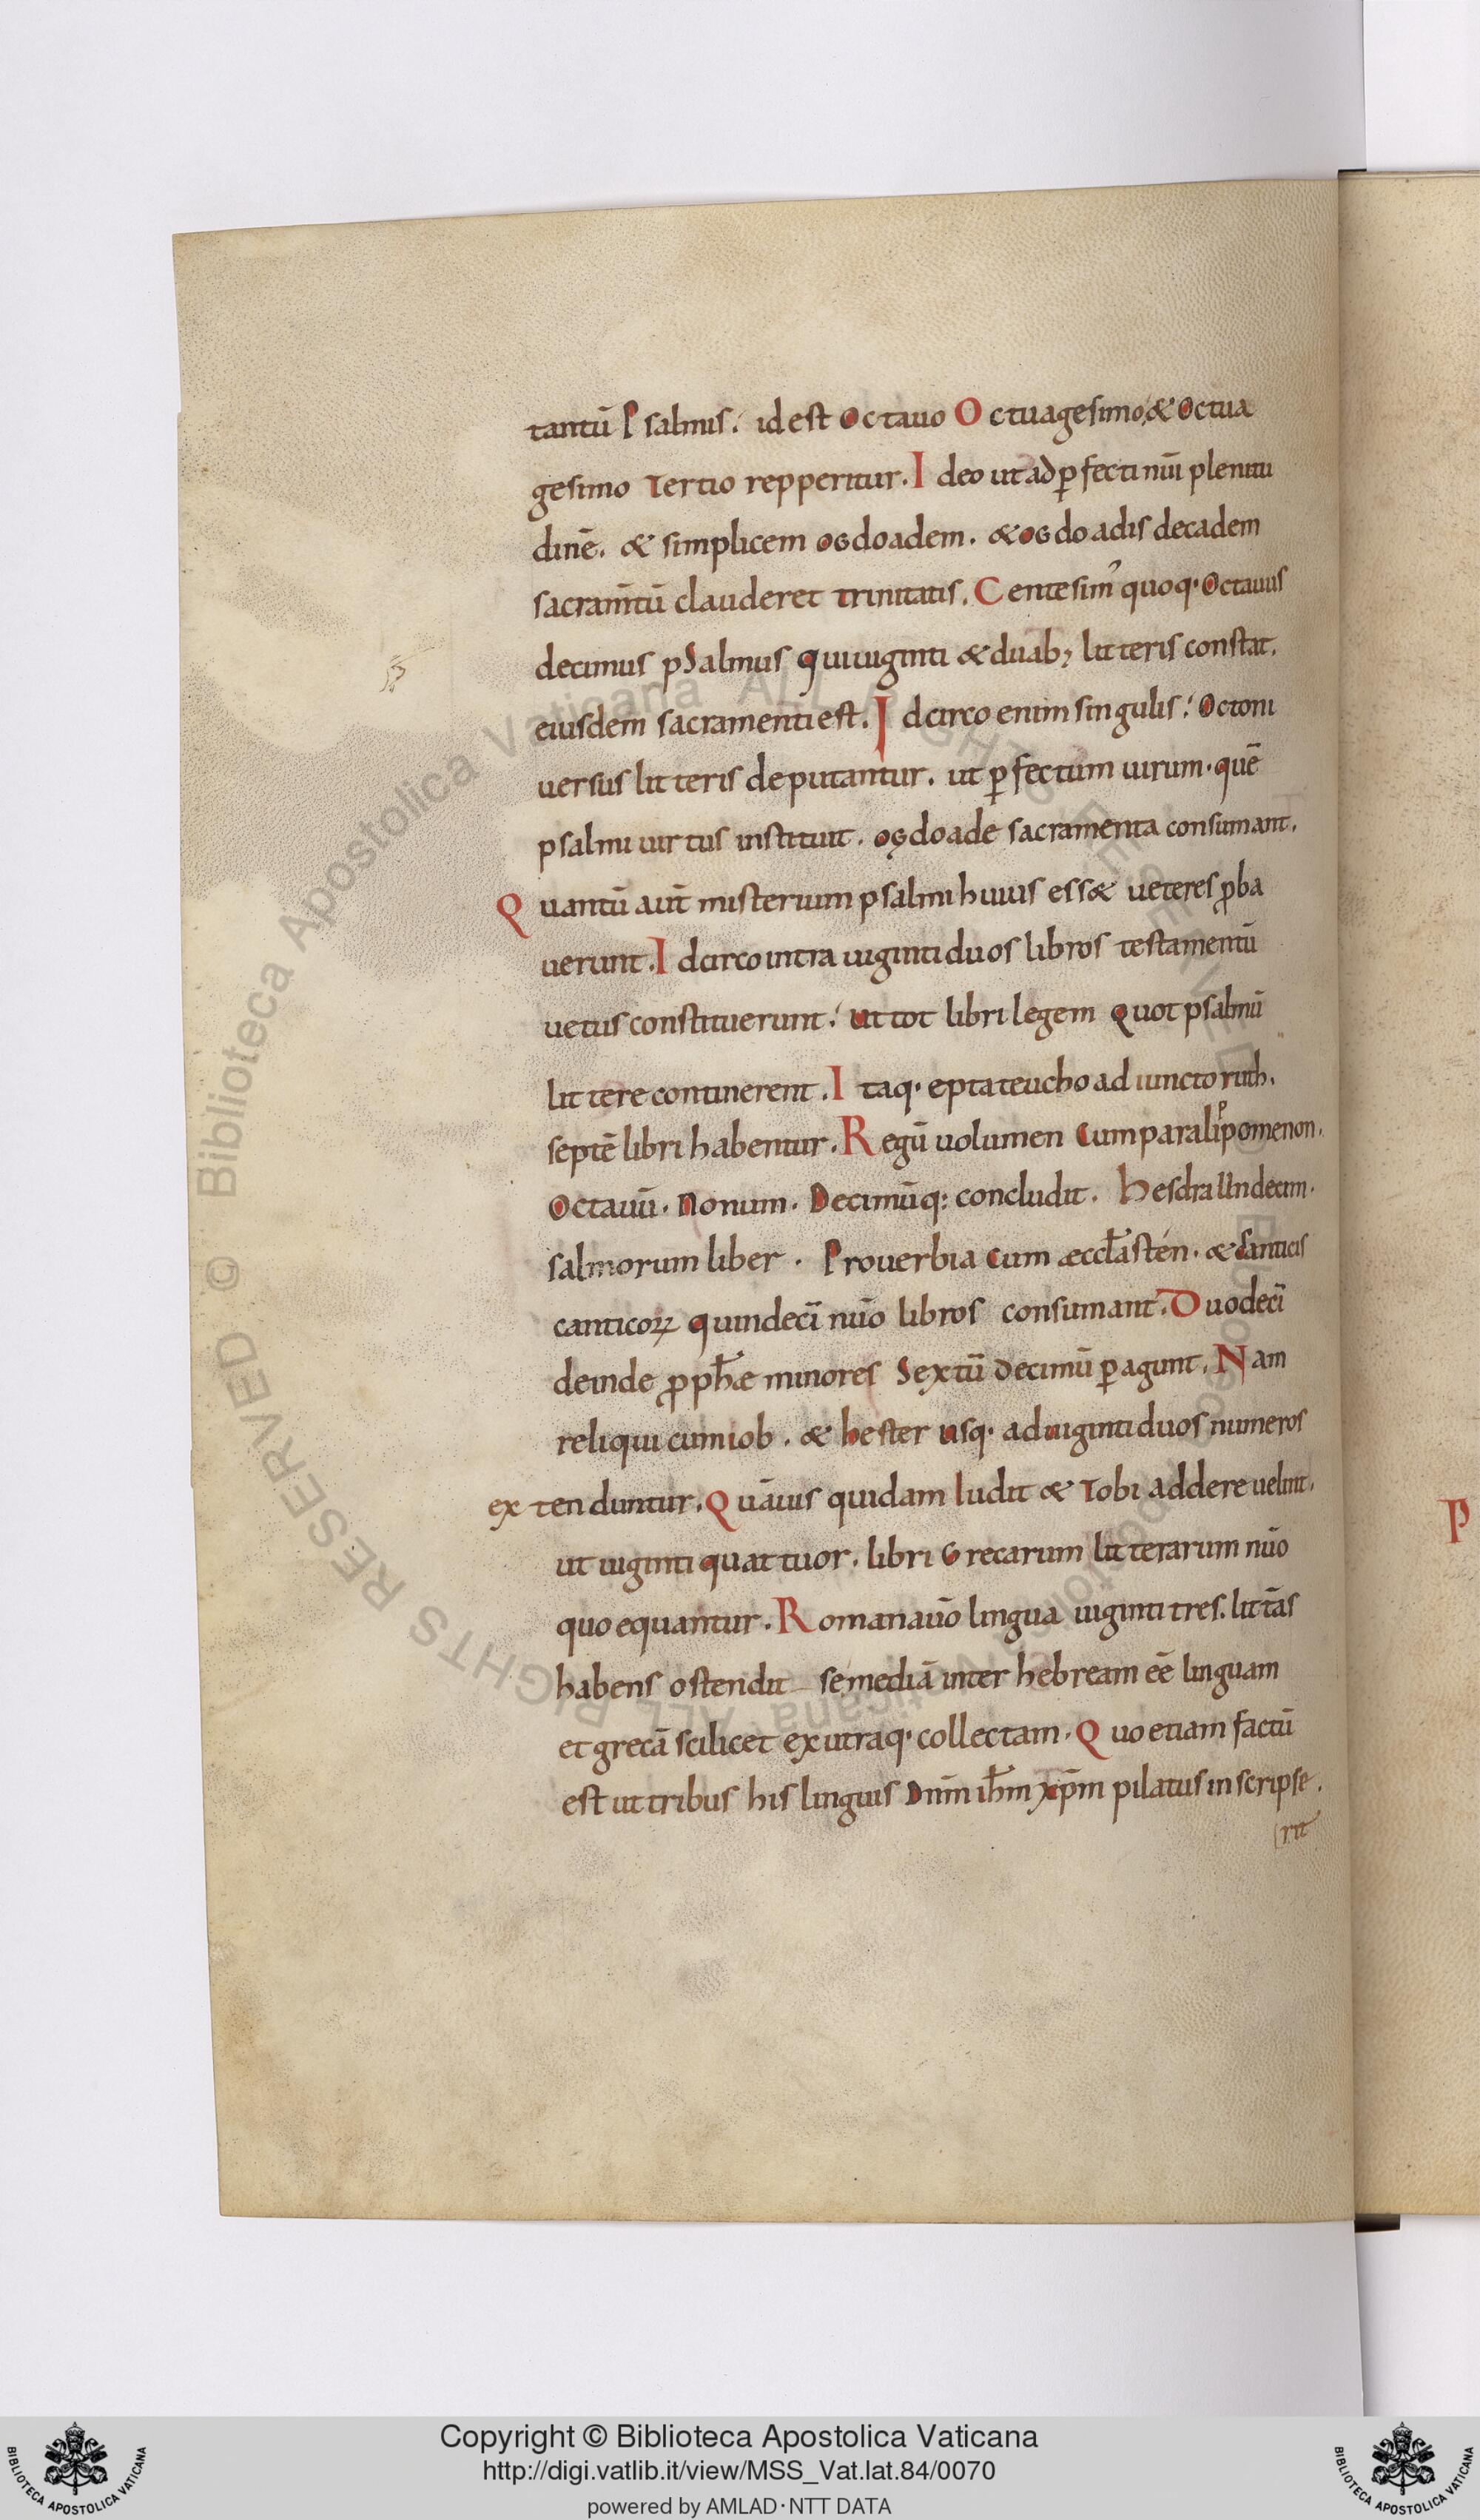 tantū Psalmis. id est Octauo Octuagesimo, & Octua
gesimo Tertio repperitur. Ideo ut ad ꝑfecti nūi plenitu
dinē. & simplicem ogdoadem. & ogdoadis decadem
sacram̄tū clauderet trinitatis. Centesim᾿ quoq· Octauus
decimus pSalmus qui uiginti & duab; litteris constat.
eiusdem sacramenti est. Idcirco enim singulis. Octoni
uersus litteris deputantur. ut ꝑfectum uirum· quē
psalmi uirtus instituit. ogdoade sacramenta consumant.
Quantū aut̄ misterium psalmi huius ess& ueteres ꝓba
uerunt. Idcirco intra uiginti duos libros testamentū
uetus constituerunt. ut tot libri legem quot psalmū
littere continerent. Itaq· eptateucho adiuncto ruth.
septē libri habentur. Regū uolumen cum paralipomenon.
Octauū. Nonum. Decimūq: concludit. hesdra Undecim.
salmorum liber. Prouerbia cum æccl̄asten. & canticis
canticoꝝ quindecī nūo libros consumant. Duodecī
deinde ꝓph̄æ minores Sextū decimū ꝑagunt. Nam
reliqui cum iob. & hester usq· ad uiginti duos numeros
extenduntur. Quāuis quidam Iudit & Tobi addere uelint.
ut uiginti quattuor. libri Grecarum litterarum nūo
quo equantur. Romana uō lingua uiginti tres. litt̄as
habens ostendit se mediā inter hebream eē linguam
et grecā scilicet ex utraq· collectam. Quo etiam factū
est ut tribus his linguis Dnm̄ ih̄m xp̄m pilatus inscripse.
rit
Copyright © Biblioteca Apostolica Vaticana
http://digi.vatlib.it/view/MSS_Vat.lat.84/0070
powered by AMLAD·NTT DATA